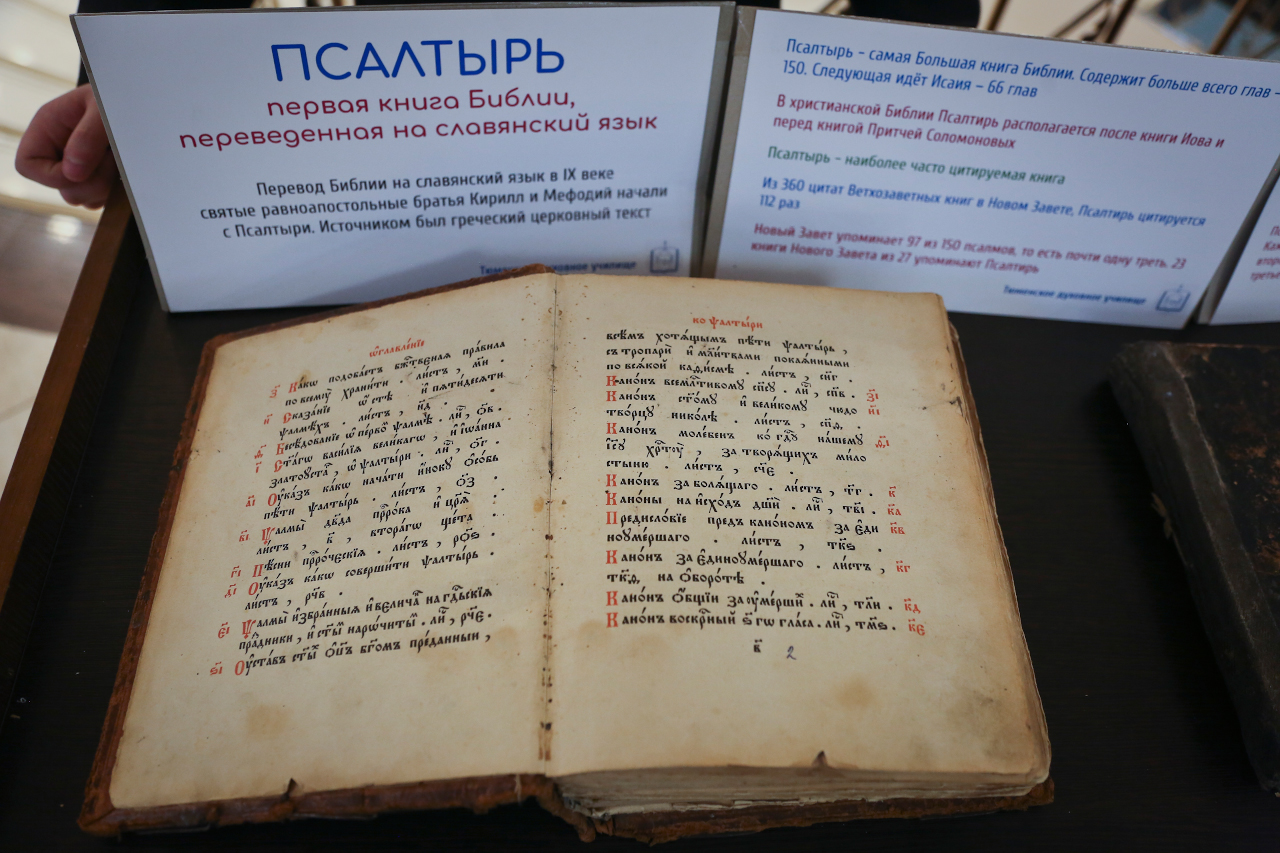 ПСАЛТЫРЬ
первая книга Библии,
переведенная на славянский язык
Перевод Библии на славянский язык в IX веке
святые равноапостольные братья Кирилл и Мефодий начали
с Псалтыри. Источником был греческий церковный текст
Тюменское духовное училище
Псалтырь - самая Большая книга Библии. Содержит больше всего глав -
150. Следующая идёт Исаия – 66 глав
В христианской Библии Псалтирь располагается после книги Иова и
перед книгой Притчей Соломоновых
Псалтырь - наиболее часто цитируемая книга
Из 360 цитат Ветхозаветных книг в Новом Завете, Псалтирь цитируется
112 раз
Новый Завет упоминает 97 из 150 псалмов, то есть почти одну треть. 23
книги Нового Завета из 27 упоминают Псалтирь
Тюменское духовное училище
ѡ҆главле́нїе
з҃ Ка́кѡ подоба́етъ бж҃твеная пра́вила
по всемꙋ̀ храни́ти . ли́стъ , м҃и
и҃ Сказа́нїе ѡ҆ стѣ̀ и҆ пѧти́десѧти
ѱалмѣ́хъ . ли́стъ , н҃д .
ѳ҃ Бесѣ́дованїе ѡ҆ пе́рвоⷨ ѱалмѣ̀ . лиⷭ҇ , ѻ҃в .
і҃ Ст҃а́гѡ васи́лїа вели́кагѡ , и҆ і҆ѡа́нна
златоꙋ́стаⷢ , ѡ҆ ѱалты́ри . лиⷭ҇ , ѻ҃г .
а҃і Оу҆ка́зъ ка́кѡ нача́ти и҆́нокꙋ ѻ҆со́бь
пѣ́ти ѱалты́рь . ли́стъ , ѻ҃з .
в҃і Ѱалмы̀ дв҃да прⷪ҇ро́ка и҆ цр҃ѧ̀ :
ли́стъ , в҃ , втора́гѡ щета̀ .
г҃і Пѣ́сни прⷪ҇ро́ческїѧ . ли́стъ , рѻ҃ѕ .
д҃і Оу҆ка́зъ ка́кѡ соверши́ти ѱалты́рь .
ли́стъ , рч҃в .
є҃і Ѱалмы̀ и҆збра́нныѧ и҆ велича́ⷩ на гдⷭ҇ьскїѧ
пра́здники , и҆ ст҃ыⷨ нарѡ́читыⷨ . лиⷭ҇ , рч҃є .
ѕ҃і Оу҆ста́въ ст҃ы́хъ ѻ҆ц҃ъ бг҃омъ пре́данныи ,
ко ѱалты́ри
всѣ́мъ хотѧ́щымъ пѣ́ти ѱалты́рь ,
съ тропарѝ и҆ мл҃твами покаѧ́нными
по всѧ́кой каѳи́смѣ . ли́стъ , с҃иг .
Кано́нъ всемлⷭ҇тивому сп҃су . лиⷭ҇ , сп҃в . з҃і
Кано́нъ ст҃о́му и҆ вели́кому чюдо и҃і
тво́рцу нико́лѣ . ли́стъ , сп҃ѳ .
Кано́нъ моле́бенъ ко гдⷭ҇у на́шему ѳ҃і
і҆с҃у хрⷭ҇ту̀ , за творѧ́щихъ ми́ло
стыню . ли́стъ , сч҃є .
Кано́нъ за болѧ́щаго . ли́стъ , т҃г . к҃
Кано́ны на и҆схо́дъ дш҃и . лиⷭ҇ , тв҃і . к҃а
Предисло́вїе предъ кано́номъ за є҆ди к҃в
ноуме́ршаго . ли́стъ , тк҃ѕ .
Кано́нъ за є҆диноуме́ршаго . ли́стъ , к҃г
тк҃ѳ , на ѻ҆боро́тѣ .
Кано́нъ ѻ҆́бщїи за оу҆ме́ршиⷯ . лиⷭ҇ , тл҃и . к҃д
Кано́нъ воскрⷭ҇ный ѕ҃гѡ гла́са . лиⷭ҇ , тм҃ѕ . к҃є
в҃ 2